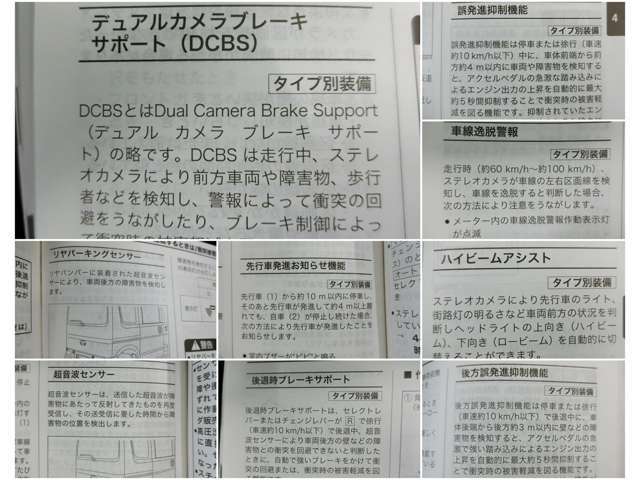 デュアルカメラブレーキ
サポート（DCBS）
タイプ別装備
DCBSとはDual Camera Brake Support
（デュアル カメラ ブレーキ サポー
ト）の略です。DCBS は走行中、ステレ
オカメラにより前方車両や障害物、歩行
者などを検知し、警報によって衝突の回
避をうながしたり、ブレーキ制御によっ
誤発進抑制機能
4
タイプ別装備
誤発進抑制機能は停車または徐行（車速
約10 km/h以下）中に、車体前端から前
方約4 m以内に車両や障害物を検知する
と、アクセルペダルの急激な踏み込みによ
るエンジン出力の上昇を自動的に最大
約5秒間抑制することで衝突時の被害軽
減を図る機能です。抑制されていたエン
車線逸脱警報
タイプ別装備
走行時（約60 km/h～約100 km/h）、
ステレオカメラが車線の左右区画線を検
知し、車線を逸脱すると判断した場合、
次の方法により注意をうながします。
● メーター内の車線逸脱警報作動表示灯
が点滅
リヤパーキングセンサー
リヤバンパーに装着された超音波セン
サーにより、車両後方の障害物を検知し
ます。
警告
先行車発進お知らせ機能
タイプ別装備
先行車（1）から約10 m以内に停車し、
そのあと先行車が発進して約4 m以上離
れても、自車（2）が停止し続けた場合、
次の方法により先行車が発進したことを
お知らせします。
ハイビームアシスト
タイプ別装備
ステレオカメラにより先行車のライト、
街路灯の明るさなど車両前方の状況を判
断しヘッドライトの上向き（ハイビー
ム）、下向き（ロービーム）を自動的に切
替えることができます。
超音波センサー
超音波センサーは、送信した超音波が障
害物にあたって反射してきたものを再度
受信し、その送受信に要した時間から障
害物の位置を検出します。
後退時ブレーキサポート
タイプ別装備
後退時ブレーキサポートは、セレクトレ
バーまたはチェンジレバーが R で徐行
（車速約10 km/h以下）で後退中、超音
波センサーにより車両後方の壁などの障
害物との衝突を回避できないと判断した
ときに、自動で強いブレーキをかけて衝
突の回避または、衝突時の被害軽減を図
後方誤発進抑制機能
タイプ別装備
後方誤発進抑制機能は停車または徐行
（車速約10 km/h以下）で後退中に、車
体後端から後方約3 m以内に壁などの障
害物を検知すると、アクセルペダルの急
激で強い踏み込みによるエンジン出力の
上昇を自動的に最大約5秒間抑制するこ
とで衝突時の被害軽減を図る機能です。